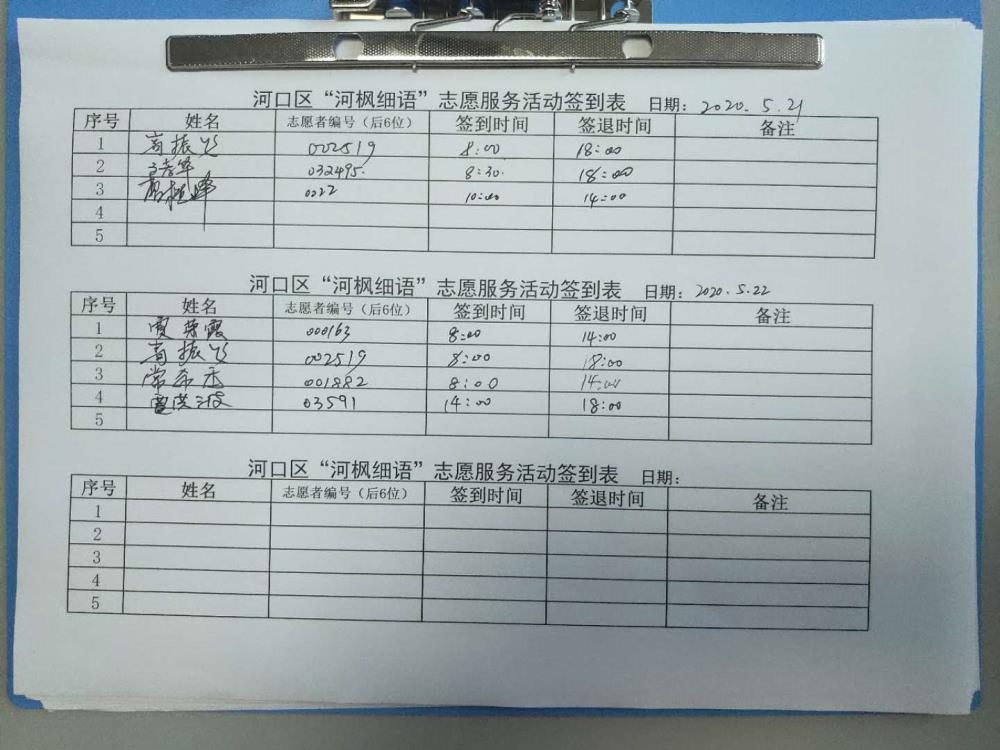 河口区“河枫细语”志愿服务活动签到表 日期：2020.5.21
序号 姓名 志愿者编号（后6位） 签到时间 签退时间 备注
1 高振飞 002519 8:00 18:00
2 032495. 8:30. 18:00
3 0022 10:00 14:00
4
5
河口区“河枫细语”志愿服务活动签到表 日期：2020.5.22
序号 姓名 志愿者编号（后6位） 签到时间 签退时间 备注
1 000163 8:00 14:00
2 高振飞 002519 8:00 18:00
3 常希 001882 8:00 14:00
4 03591 14:00 18:00
5
河口区“河枫细语”志愿服务活动签到表 日期：
序号 姓名 志愿者编号（后6位） 签到时间 签退时间 备注
1
2
3
4
5